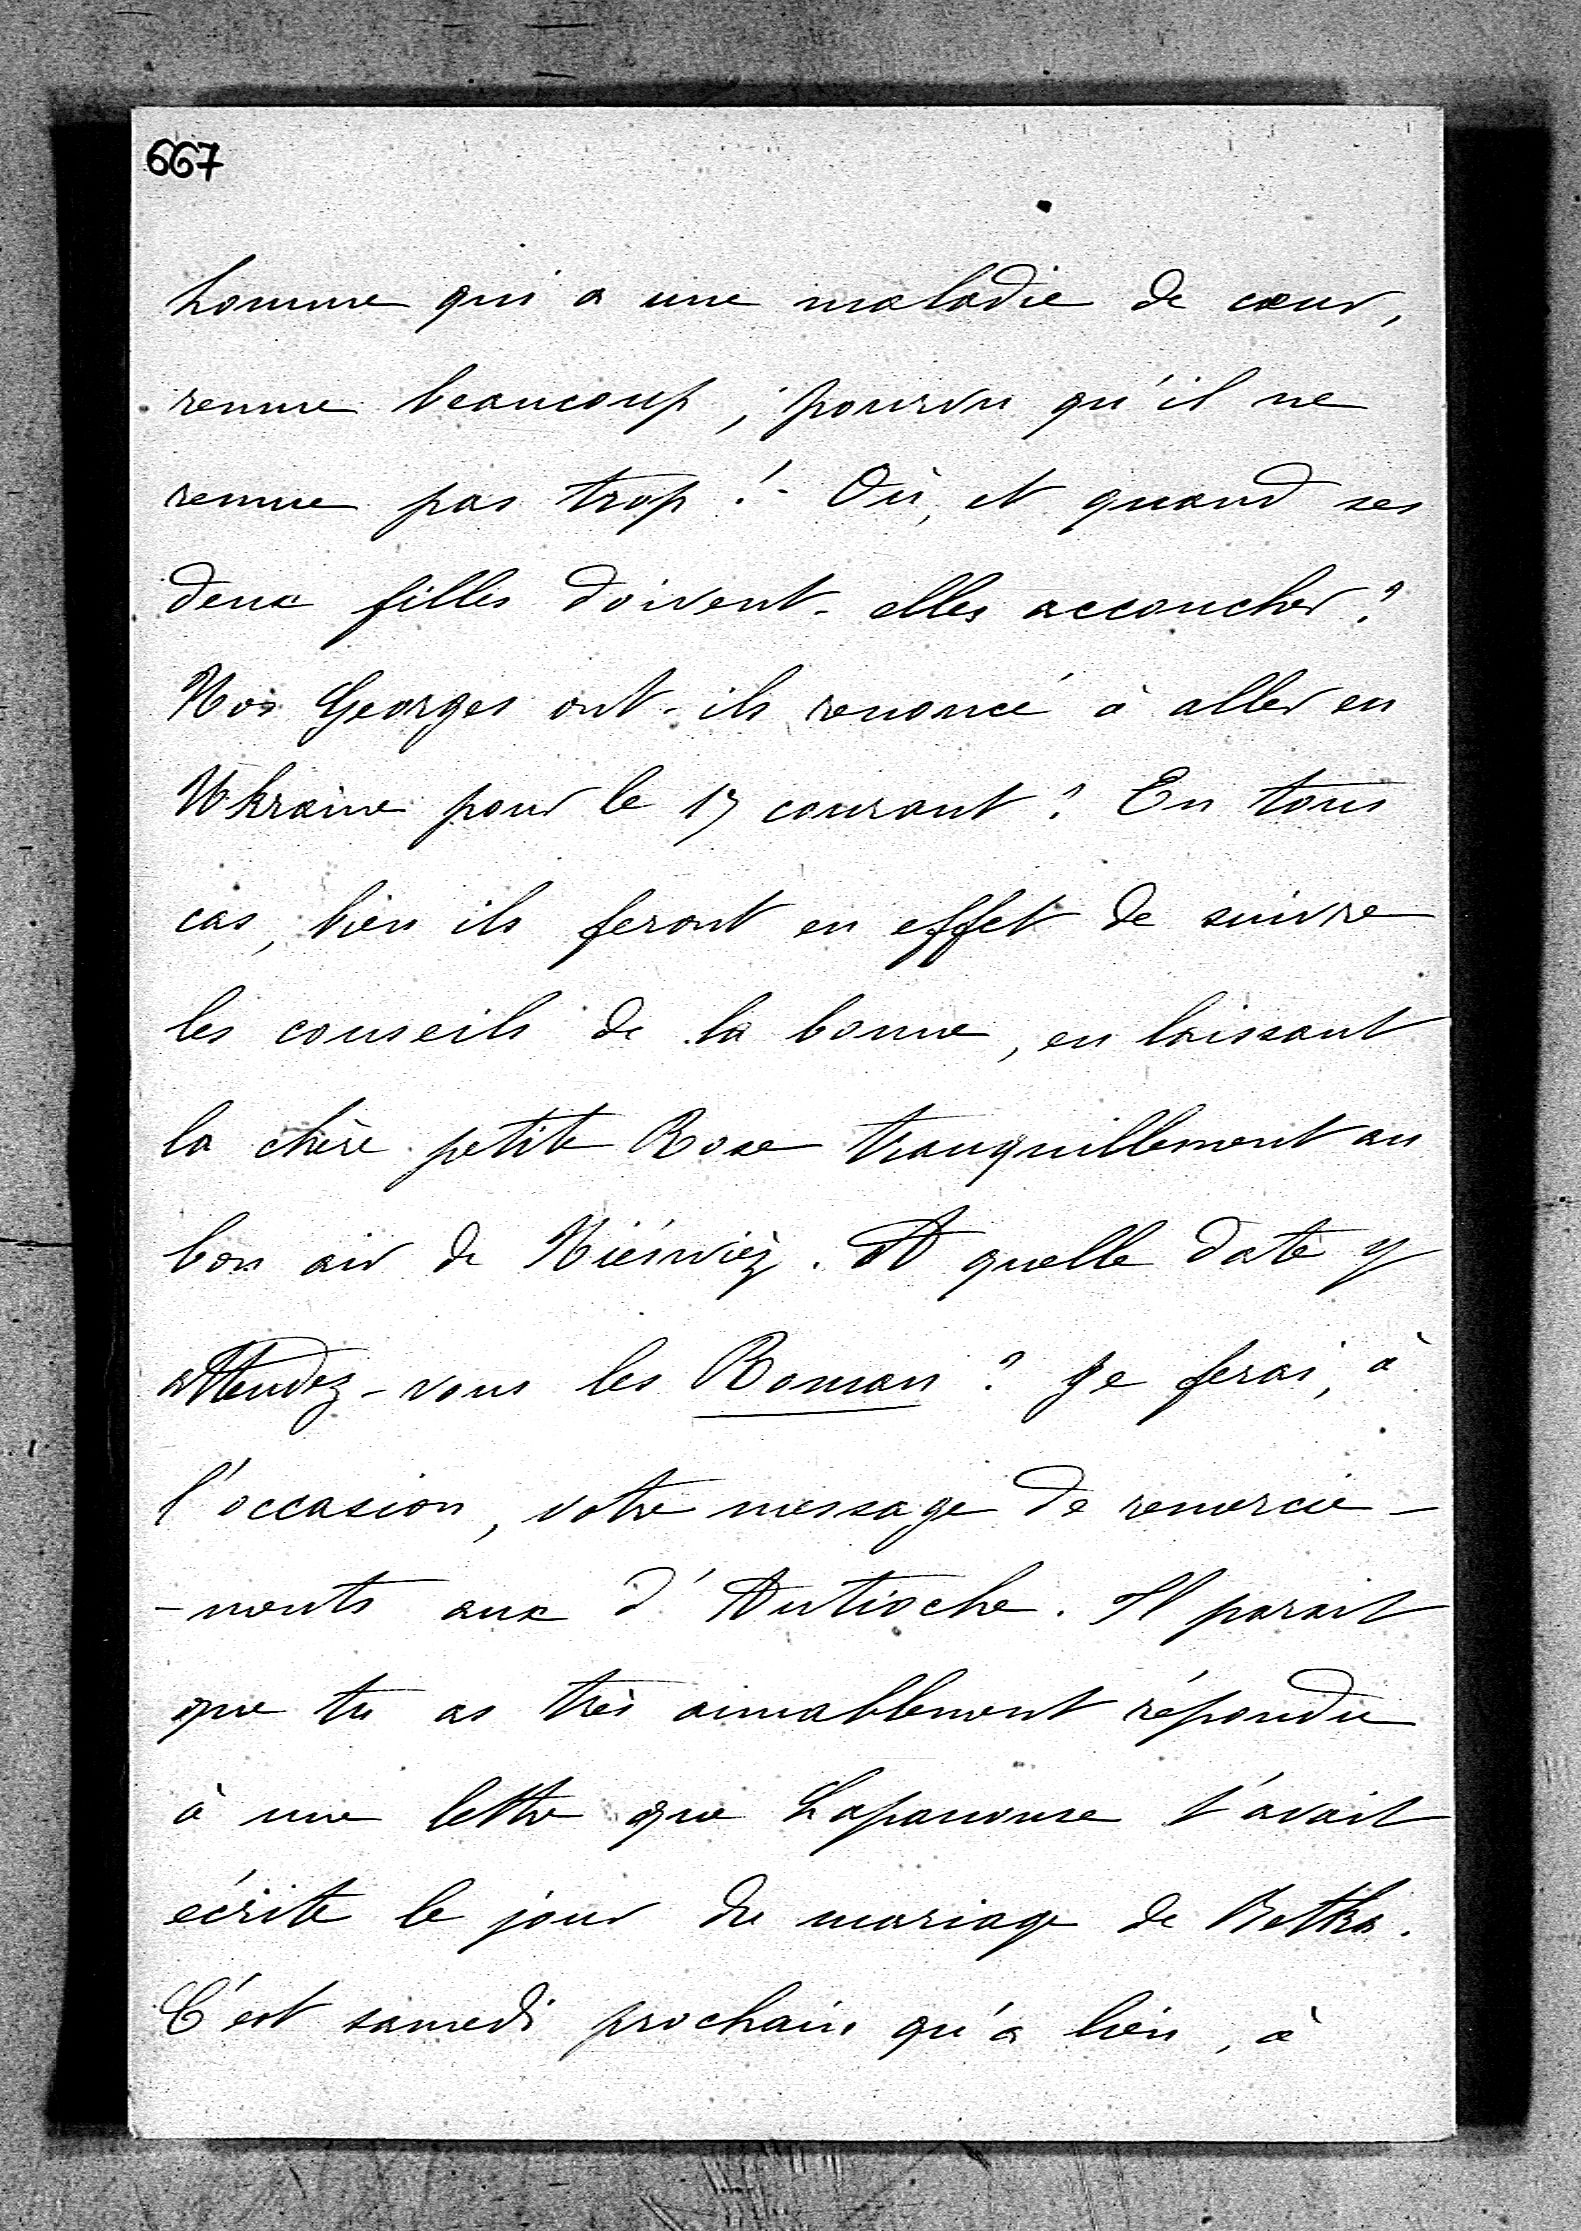 667
homme qui a une maladie de cœur,
remue beaucoup ; pourvu qu'il ne
remue pas trop ! - Où, et quand ses
deux filles doivent-elles accoucher ?
Nos Georges ont-ils renoncé à aller en
Ukraine pour le 17 courant ? En tous
cas, bien ils feront en effet de suivre
les conseils de la bonne, en laissant
la chère petite Rose tranquillement au
bon air de Niéśwież. A quelle date y
attendez-vous les Roman ? Je ferai, à
l'occasion, votre message de remercie-
-ments aux d'Antioche. Il parait
que tu as très aimablement répondu
à une lettre que Lapanouse t'avait
écrite le jour du mariage de Betka.
C'est samedi prochain qu'a lieu, à